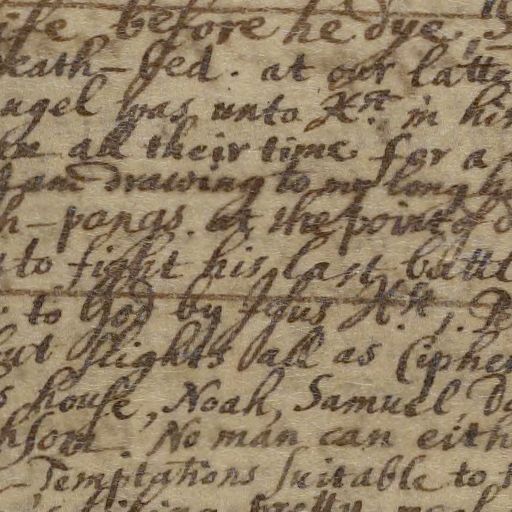 ife before he dye,
death-bed. at our latte
ngel was unto Xst in his
en all their time for a
I am drawing to my long h
h-pangs. at the point of d
to fight his last battl
. to God by Jesus Xst, Pe
but slights all as Cipher
s house, Noah, Samuel, Da
hsom. No man can eith
-Temptations suitable to t
pretty